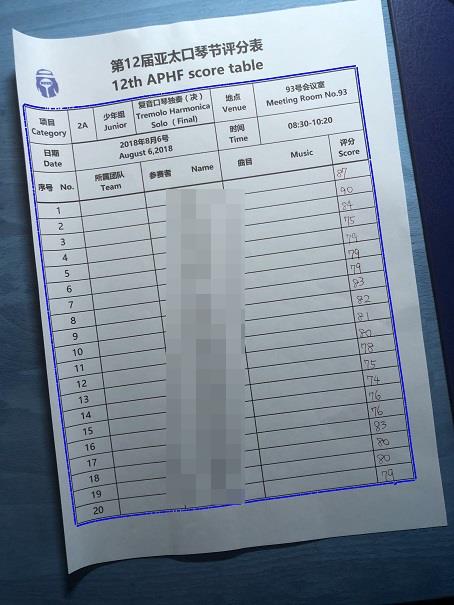 第12届亚太口琴节评分表
12th APHF score table
项目 Category 2A 少年组 Junior 复音口琴独奏（决） Tremolo Harmonica Solo（Final） 地点 Venue 93号会议室 Meeting Room No.93
日期 Date 2018年8月6号 August 6,2018 时间 Time 08:30-10:20
序号 No. 所属团队 Team 参赛者 Name 曲目 Music 评分 Score
1 87
2 90
3 84
4 75
5 79
6 79
7 79
8 83
9 82
10 81
11 80
12 78
13 75
14 74
15 76
16 76
17 83
18 80
19 80
20 79